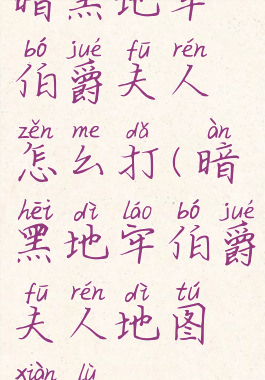 暗黑地牢
bó jué fū rén
伯爵夫人
zěn me dǎ àn
怎么打(暗
hēi dì láo bó jué
黑地牢伯爵
fū rén dì tú
夫人地图
xiàn lù